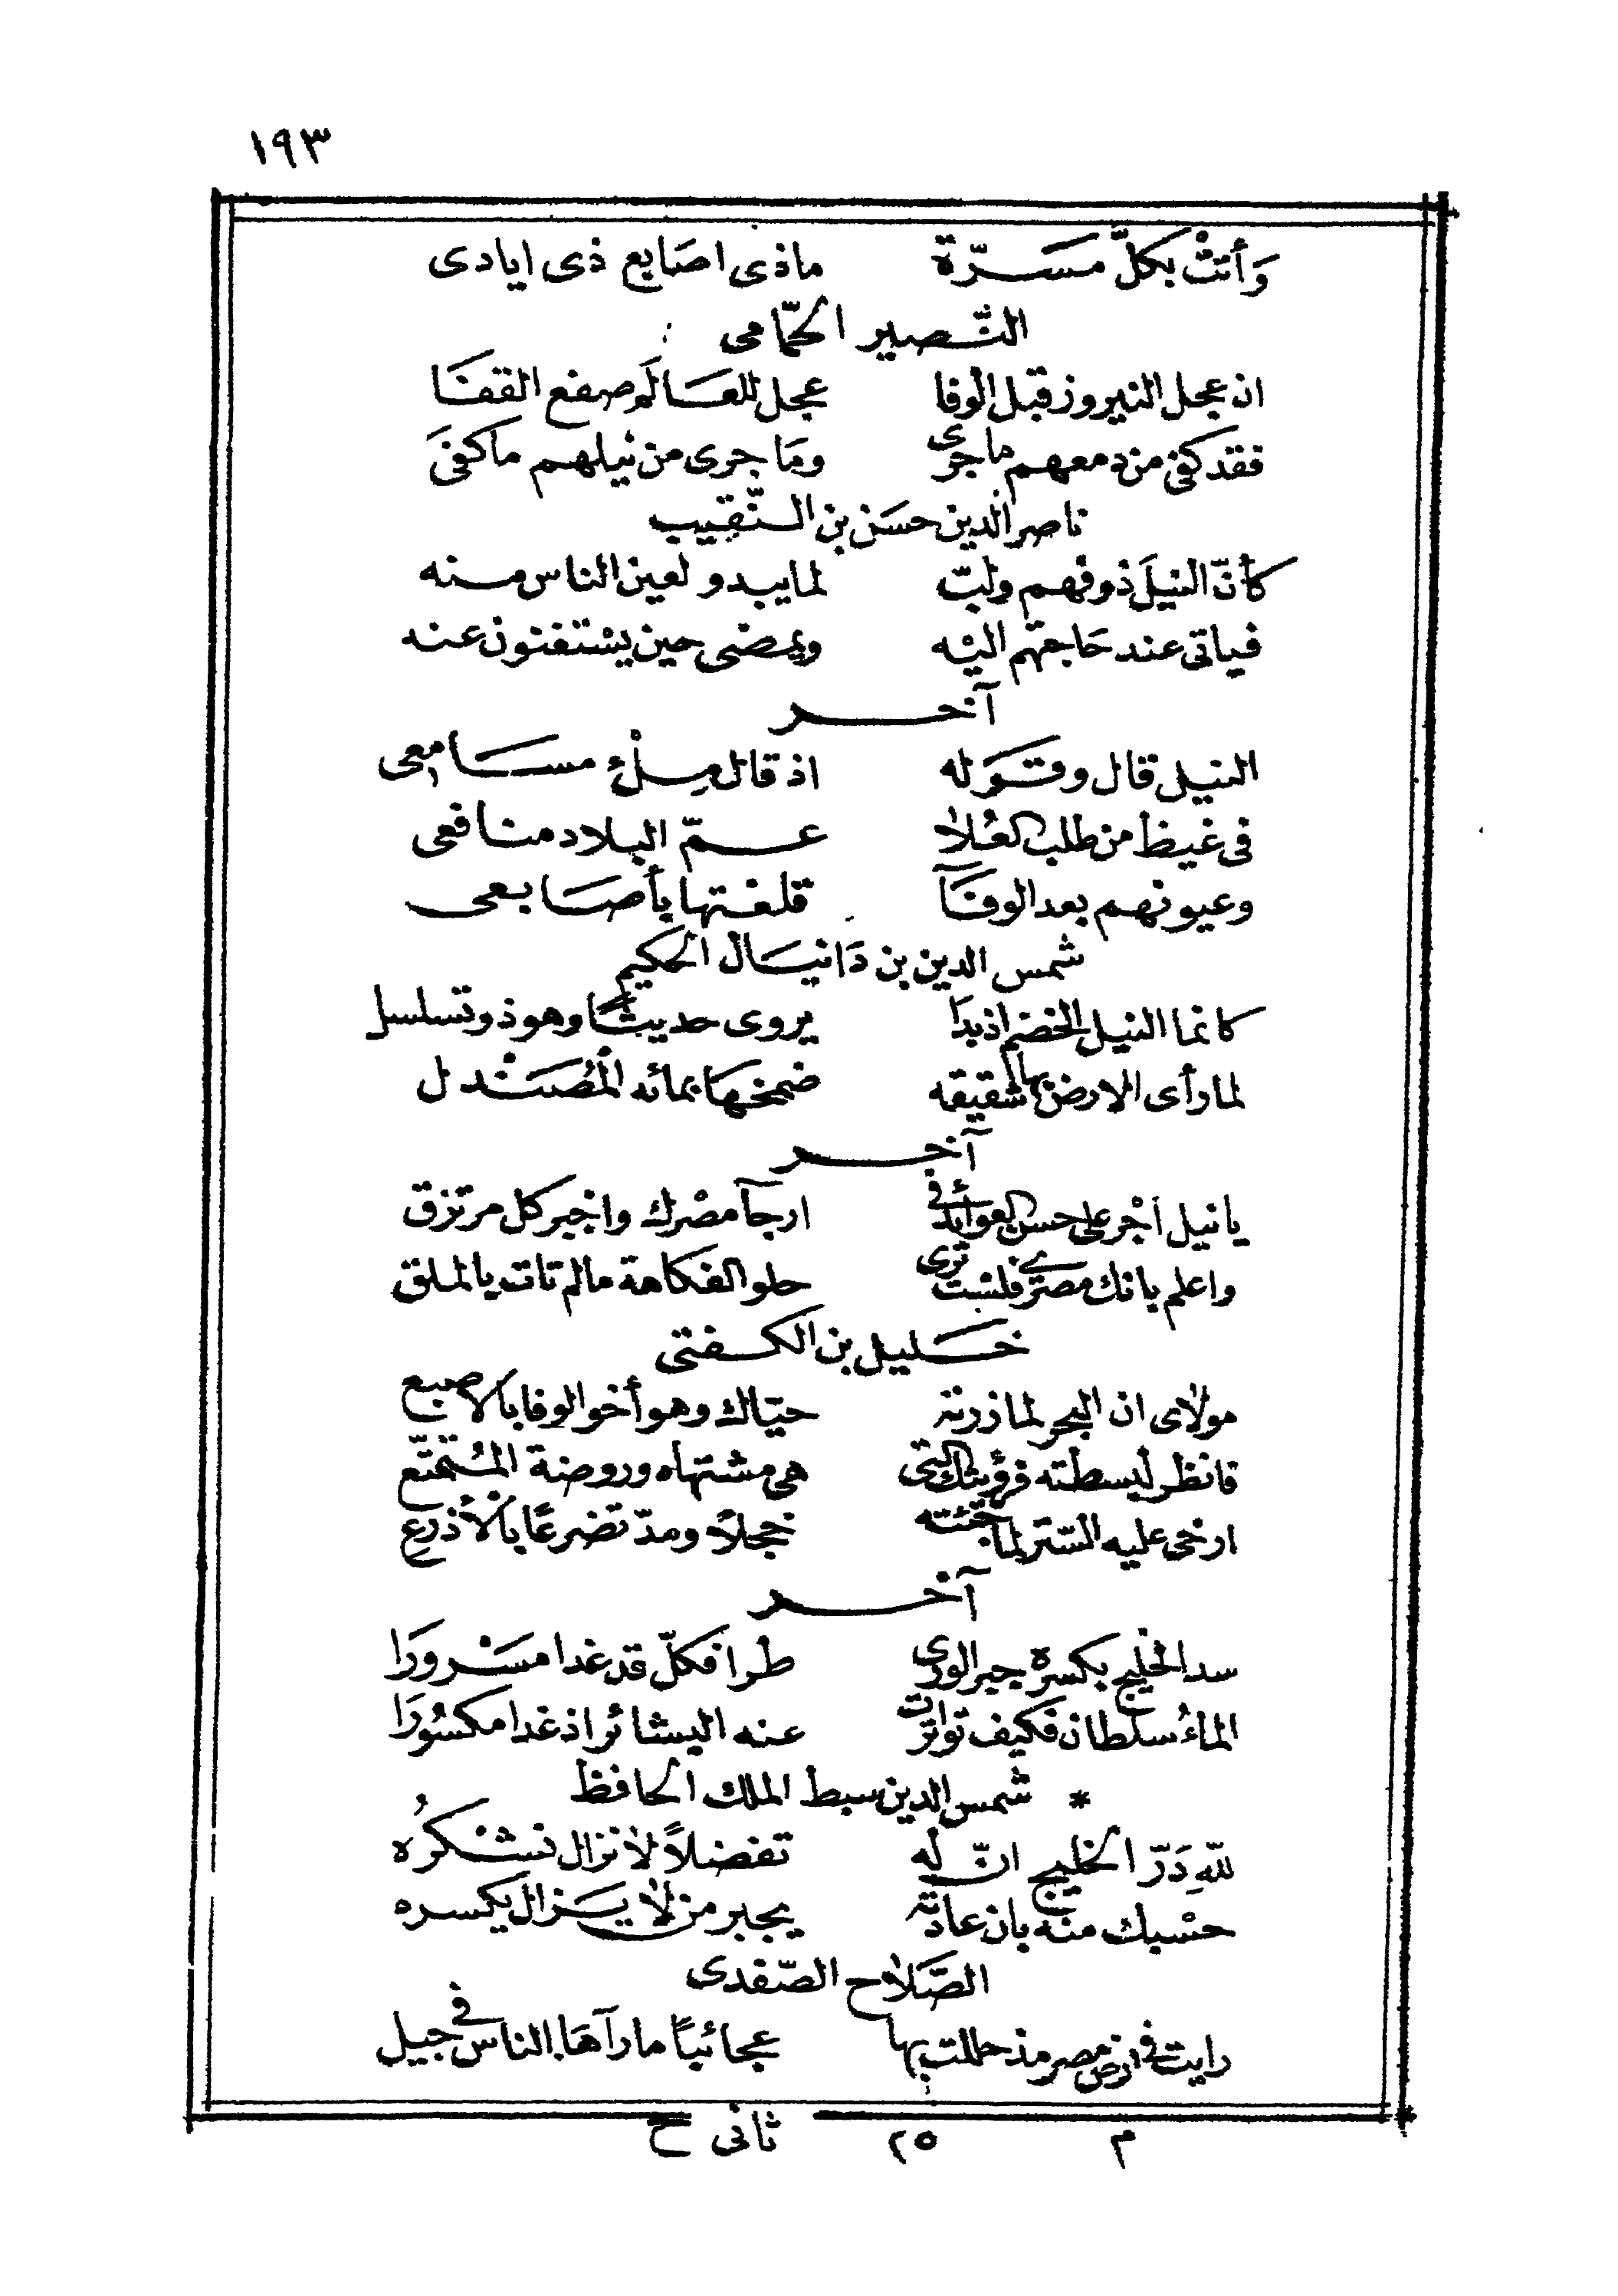 ١٩٣
وَأتتْ بكلّ مسَرّة ماذى اصَابع ذى ايادى
النّصير الحمّامى
ان عجل النيروز قبل الوفا عجل للعَالم صفع القفَا
فقد كفى من دمعهم ماجرى ومَا جرى من نيلهم ماكفىَ
ناصر الدين حسَن بن النّقيب
كأنّ النيلَ ذو فهم ولبّ لما يبدو لعين الناس منه
فياتى عند حَاجتهم اليْه ويمضى حين يسْتغنون عنه
آخر
النيل قال وقوَله اذ قال ملْءِ مسَامعى
فى غيظ من طلب العُلا عمّ البلاد منافعى
وعيونهم بعد الوفآ قلعتها بأصَابعى
شمس الدين بن دَانيَال الحكيم
كانما النيل الخضم اذ بدَا يروى حديثًا وهو ذو تسلسل
لما رأى الارض بها شقيقه ضمخهَا بمائه المُصَنْدل
آخر
يا نيل اجْر على حسن العوائد فى ارجآ مصْرك واجبر كل مرتزق
واعلم بانك مصرى فلست ترى حلو الفكاهة مالم تات بالملق
خَليل بن الكفتى
مولاى ان البحر لما زرته حيّاك وهو أخو الوفا بالاصبع
فانظر لبسطته فرؤيتك التى هى مشتهاه وروضة المُتمتّع
ارخى عليه السّتر لما جئته خجلاً ومدّ تضرعًا بالأذرع
آخر
سد الخليج بكسره جبر الورى طرا فكلّ قد غدا مسْرورَا
الماءُ سلطان فكيف تواترت عنه البشائر اذ غدا مكسُورَا
* شمس الدين سبط الملك الحافظ
للّهِ دَرّ الخليج انّ له تفضلاً لا نزال نشْكرُه
حسْبك منه بان عادته يجبر من لا يزال يكسره
الصّلاح الصّفدى
رايت فى ارض مصر مذ حللت بها عجائبًا ما رآهَا الناس فى جيل
م ٢٥ ثانى ح